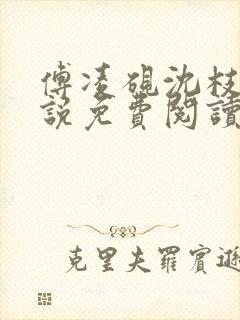 傅凌砚沈枝
說免費閱讀
克里夫羅賓遜